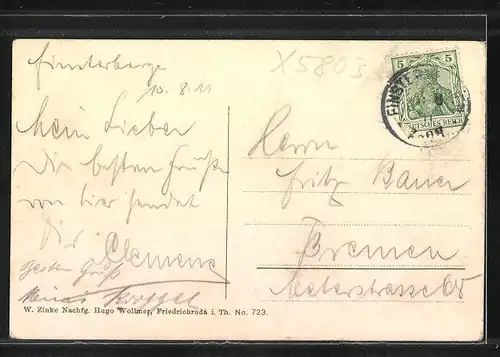 Finsterbergen
10.8.11
Mein Lieber
die besten Grüße
von hier sendet
Dir Clemens
Besten Gruß
X5803
5
DEUTSCHES REICH
Herrn
Fritz Bauer
Bremen
W. Zinke Nachfg. Hugo Wollmer, Friedrichroda i. Th. No. 723.